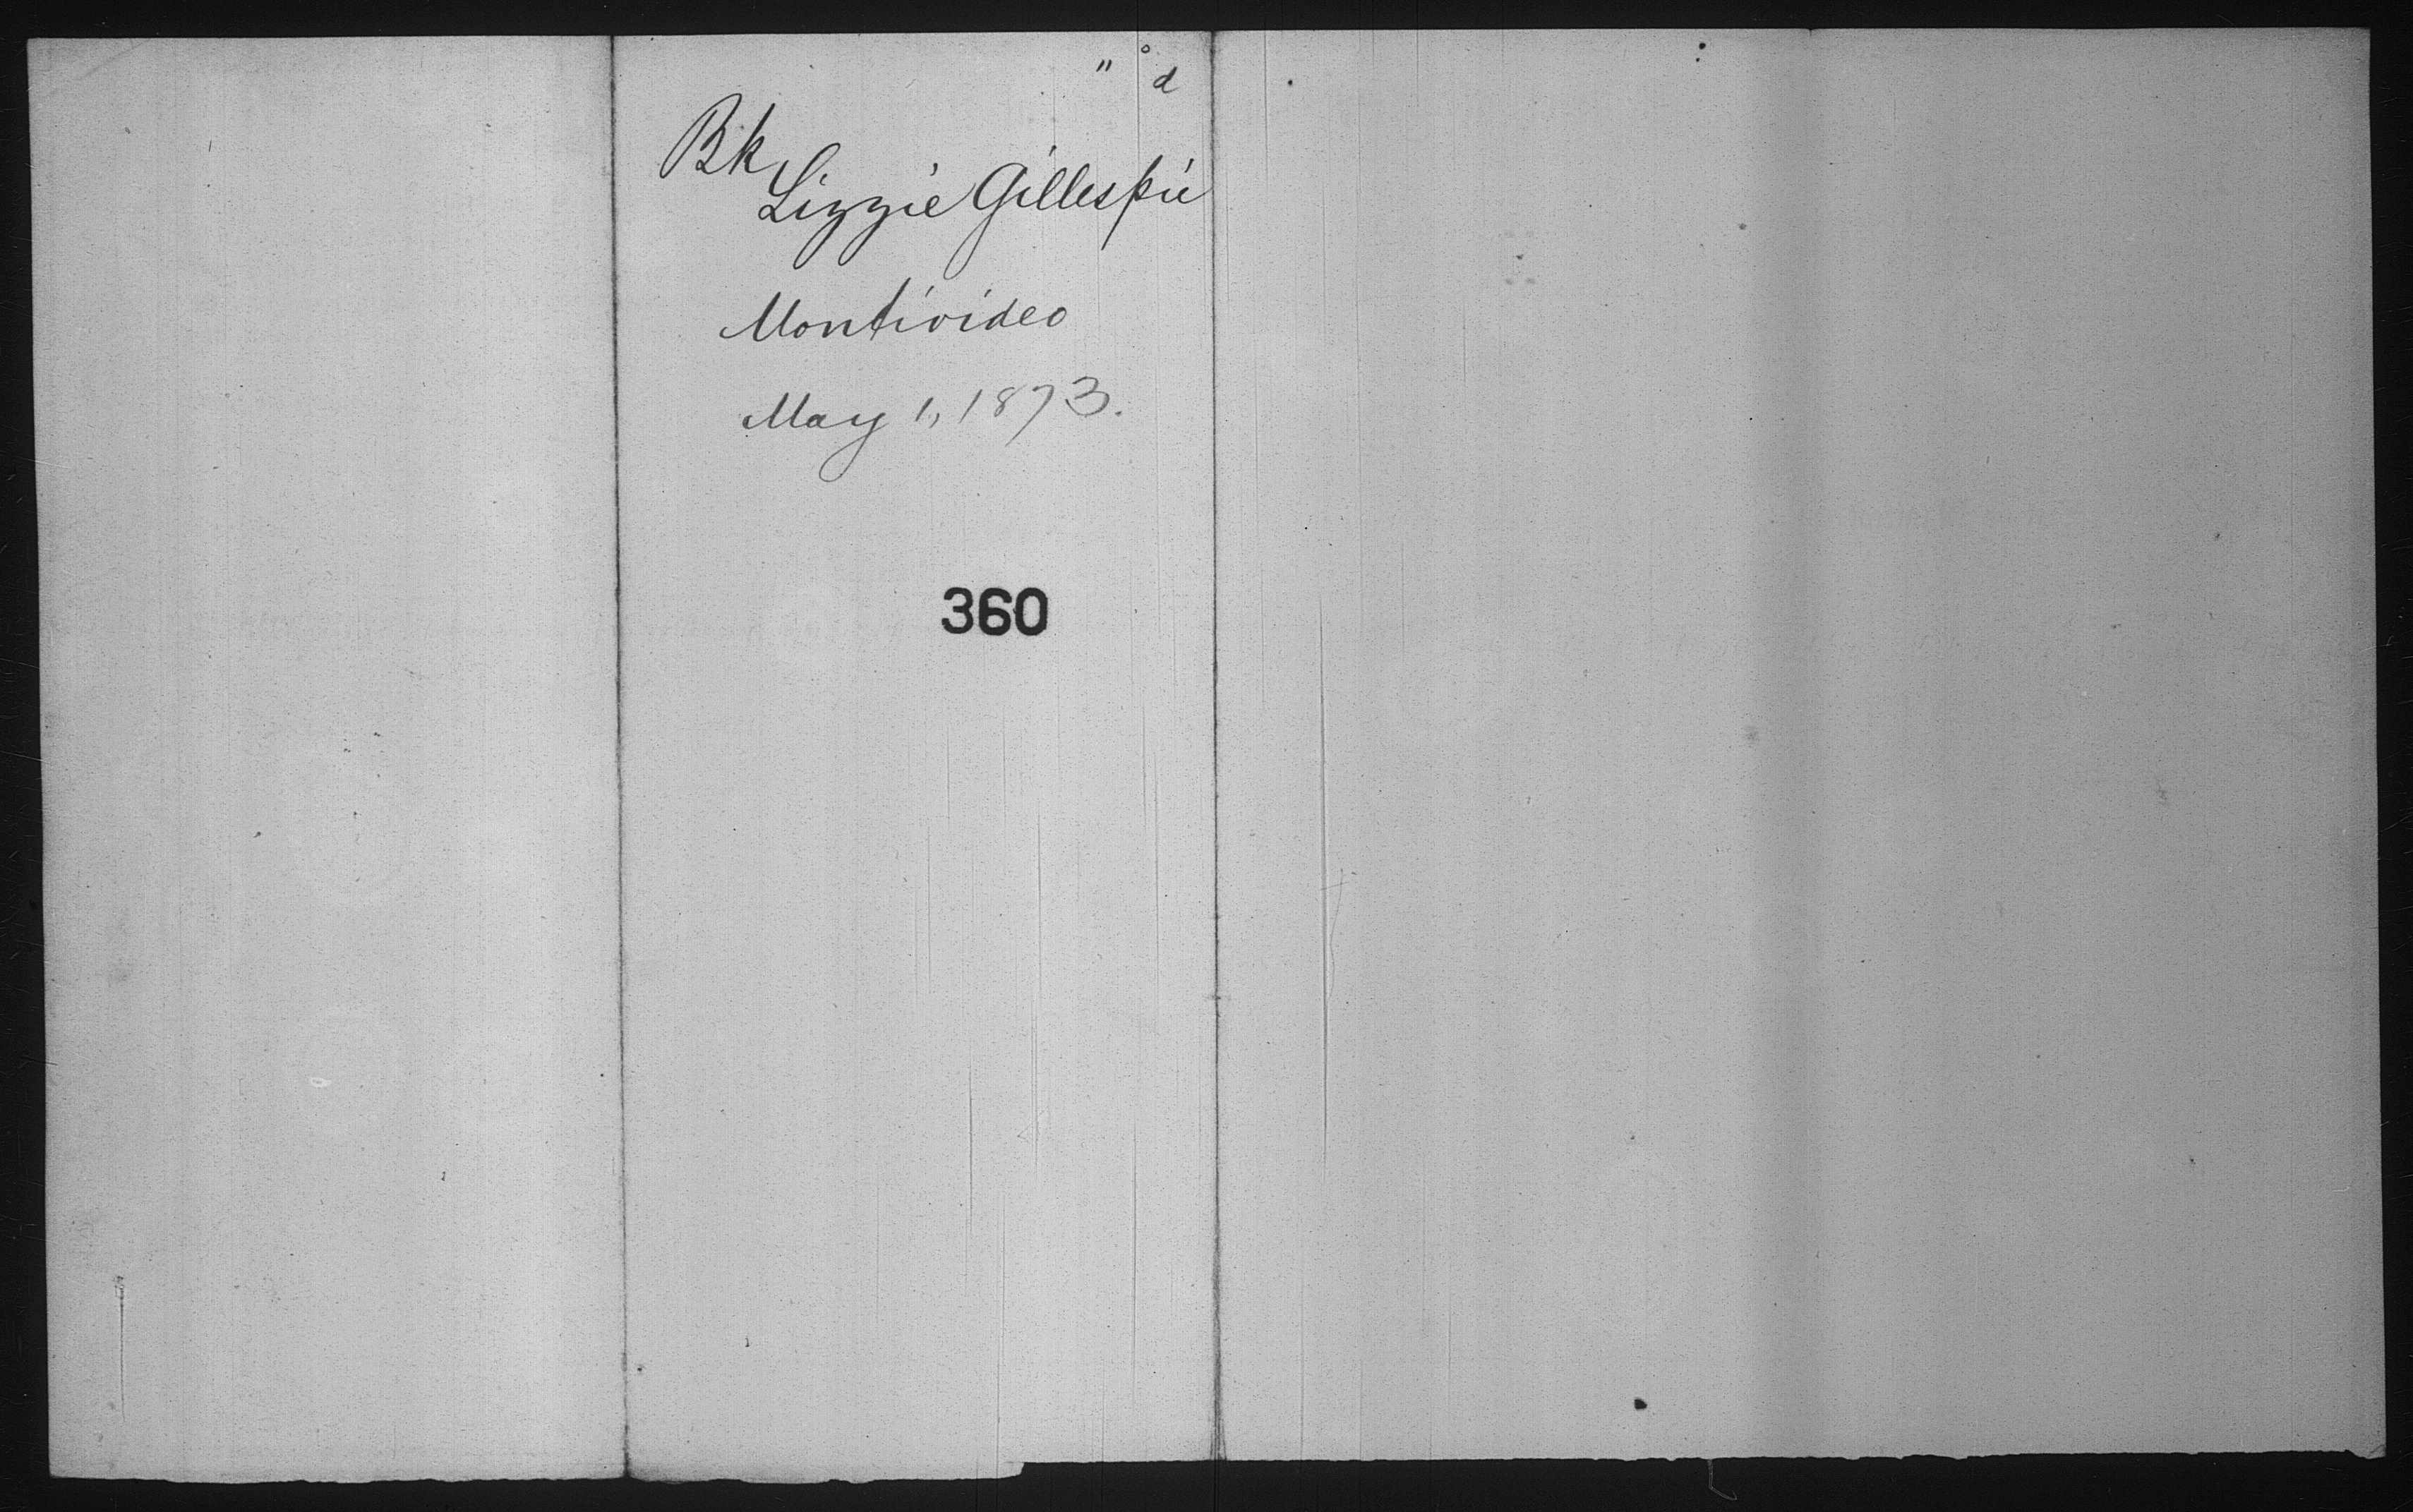 " d
Bk
Lizzie Gillespie
Montivideo
May 1, 1873.
360